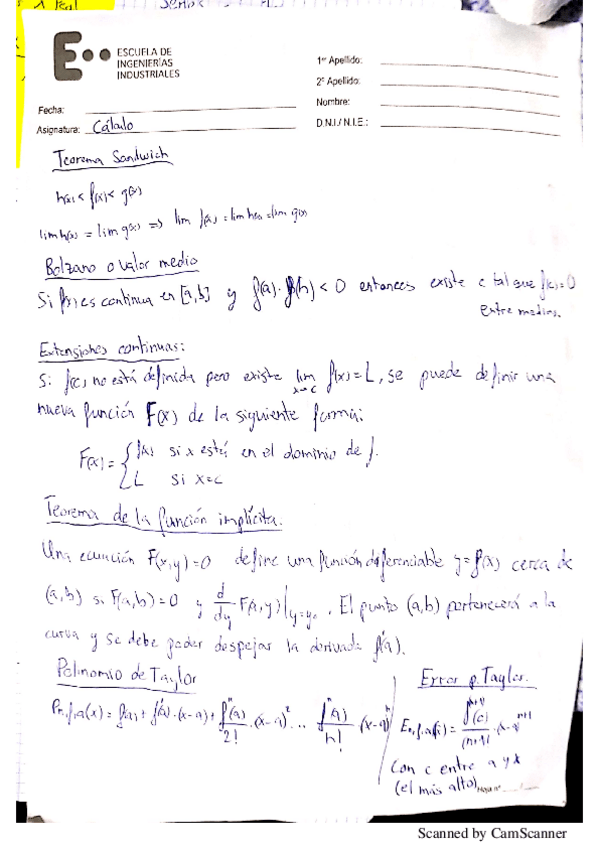 ESCUELA DE
INGENIERÍAS
INDUSTRIALES
1er Apellido:
2º Apellido:
Nombre:
D.N.I./N.I.E.:
Fecha:
Asignatura: Cálculo
Teorema Sandwich
h(x) < f(x) < g(x)
lim h(x) = lim g(x) => lim f(x) = lim h(x) = lim g(x)
Bolzano o valor medio
Si f(x) es continua en [a,b] y f(a)·f(b) < 0 entonces existe c tal que f(c)=0
entre medias.
Extensiones continuas:
Si f(c) no está definida pero existe lim x→c f(x) = L, se puede definir una
nueva función F(x) de la siguiente forma:
F(x) = { f(x) si x está en el dominio de f.
L si x=c
Teorema de la función implícita.
Una ecuación F(x,y)=0 define una función diferenciable y=f(x) cerca de
(a,b) si F(a,b)=0 y d/dy F(x,y)|y=y₀. El punto (a,b) pertenecerá a la
curva y se debe poder despejar la derivada f'(a).
Polinomio de Taylor
Pn,f,a(x) = f(a) + f'(a)·(x-a) + f''(a)/2!·(x-a)² ... fⁿ(a)/n! (x-a)ⁿ
Error p. Taylor.
En,f,a(x) = fⁿ⁺¹(c)/(n+1)! ·(x-a)ⁿ⁺¹
Con c entre a y x
(el más alto)
Hoja nº
Scanned by CamScanner